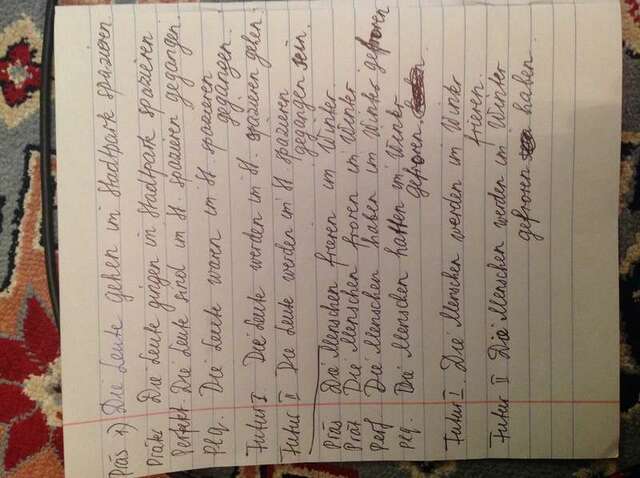 Präs 1) Die Leute gehen im Stadtpark spazieren
Prät: Die Leute gingen im Stadtpark spazieren
Perfekt. Die Leute sind im St. spazieren gegangen.
Plq. Die Leute waren im St. spazieren
gegangen.
Futur I. Die Leute werden im St. spazieren gehen.
Futur II Die Leute werden im St. spazieren
gegangen sein.
Präs Die Menschen frieren im Winter
Prät Die Menschen froren im Winter
Perf Die Menschen haben im Winter gefroren
Plq. Die Menschen hatten im Winter
gefroren.
Futur I. Die Menschen werden im Winter
frieren.
Futur II Die Menschen werden im Winter
gefroren haben